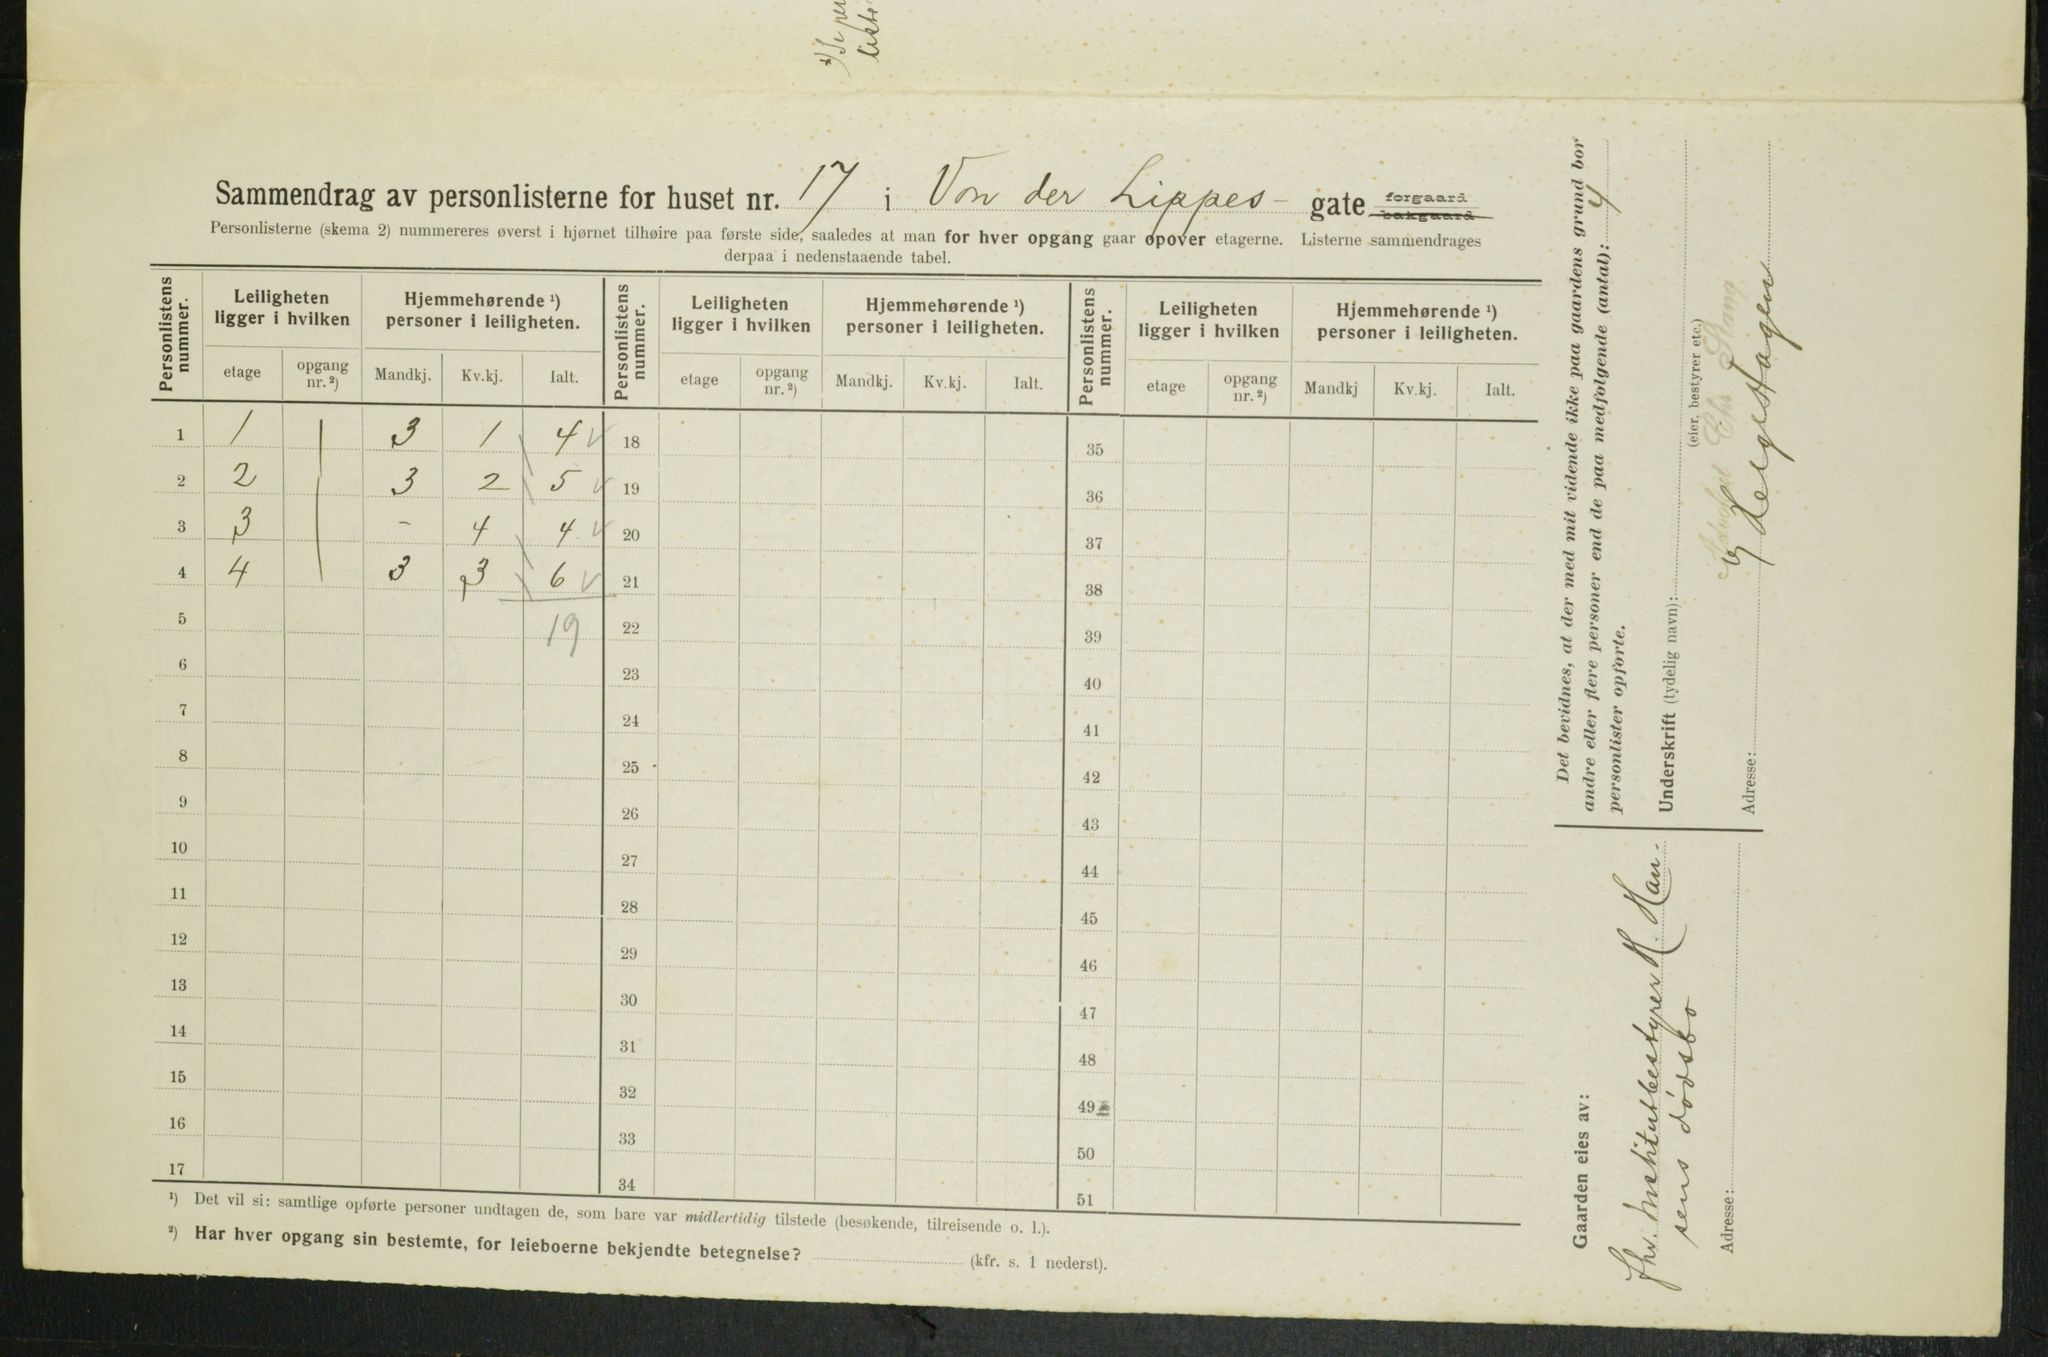 Sammendrag av personlisterne for huset nr. 17 i Von der Lippes- gate forgaard
bakgaard
Personlisterne (skema 2) nummereres øverst i hjørnet tilhøire paa første side, saaledes at man for hver opgang gaar opover etagerne. Listerne sammendrages
derpaa i nedenstaaende tabel.
Personlistens nummer. Leiligheten ligger i hvilken Hjemmehørende ¹) personer i leiligheten. Personlistens nummer. Leiligheten ligger i hvilken Hjemmehørende ¹) personer i leiligheten. Personlistens nummer. Leiligheten ligger i hvilken Hjemmehørende ¹) personer i leiligheten.
etage opgang nr. ²) Mandkj. Kv.kj. Ialt. etage opgang nr. ²) Mandkj. Kv.kj. Ialt. etage opgang nr. ²) Mandkj Kv.kj. Ialt.
1 1 | 3 1 4 18 35
2 2 | 3 2 5 19 36
3 3 | - 4 4 20 37
4 4 | 3 3 6 21 38
5 19 22 39
6 23 40
7 24 41
8 25 42
9 26 43
10 27 44
11 28 45
12 29 46
13 30 47
14 31 48
15 32 49
16 33 50
17 34 51
¹) Det vil si: samtlige opførte personer undtagen de, som bare var midlertidig tilstede (besøkende, tilreisende o. l.).
²) Har hver opgang sin bestemte, for leieboerne bekjendte betegnelse? (kfr. s. 1 nederst).
Det bevidnes, at der med mit vidende ikke paa gaardens grund bor
andre eller flere personer end de paa medfølgende (antal): 4
personlister opførte.
Underskrift (tydelig navn):
(eier, bestyrer etc.)
Chr Stang
Adresse:
Gaarden eies av:
fhv. Institutbestyrer H. Han-
sens dødsbo
Adresse: